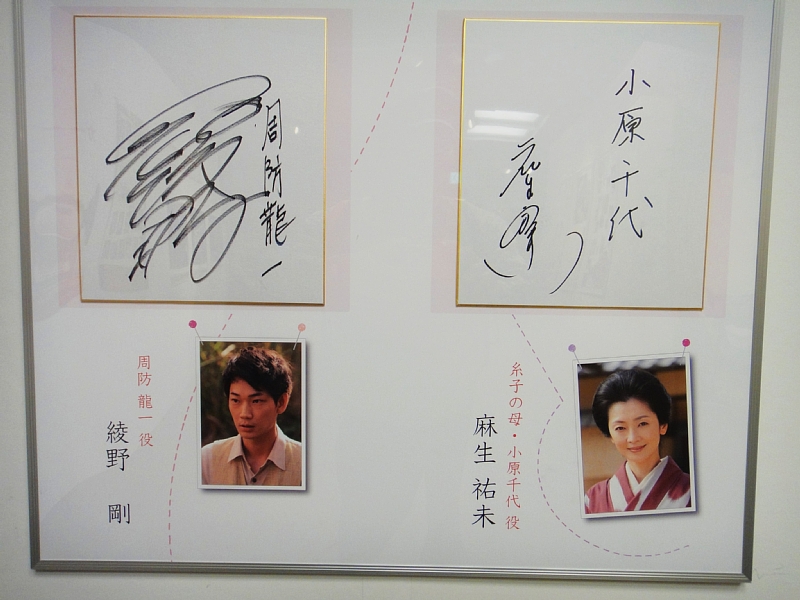 周防龍一
小原千代
周防 龍一 役
綾野 剛
糸子の母・小原千代 役
麻生 祐未